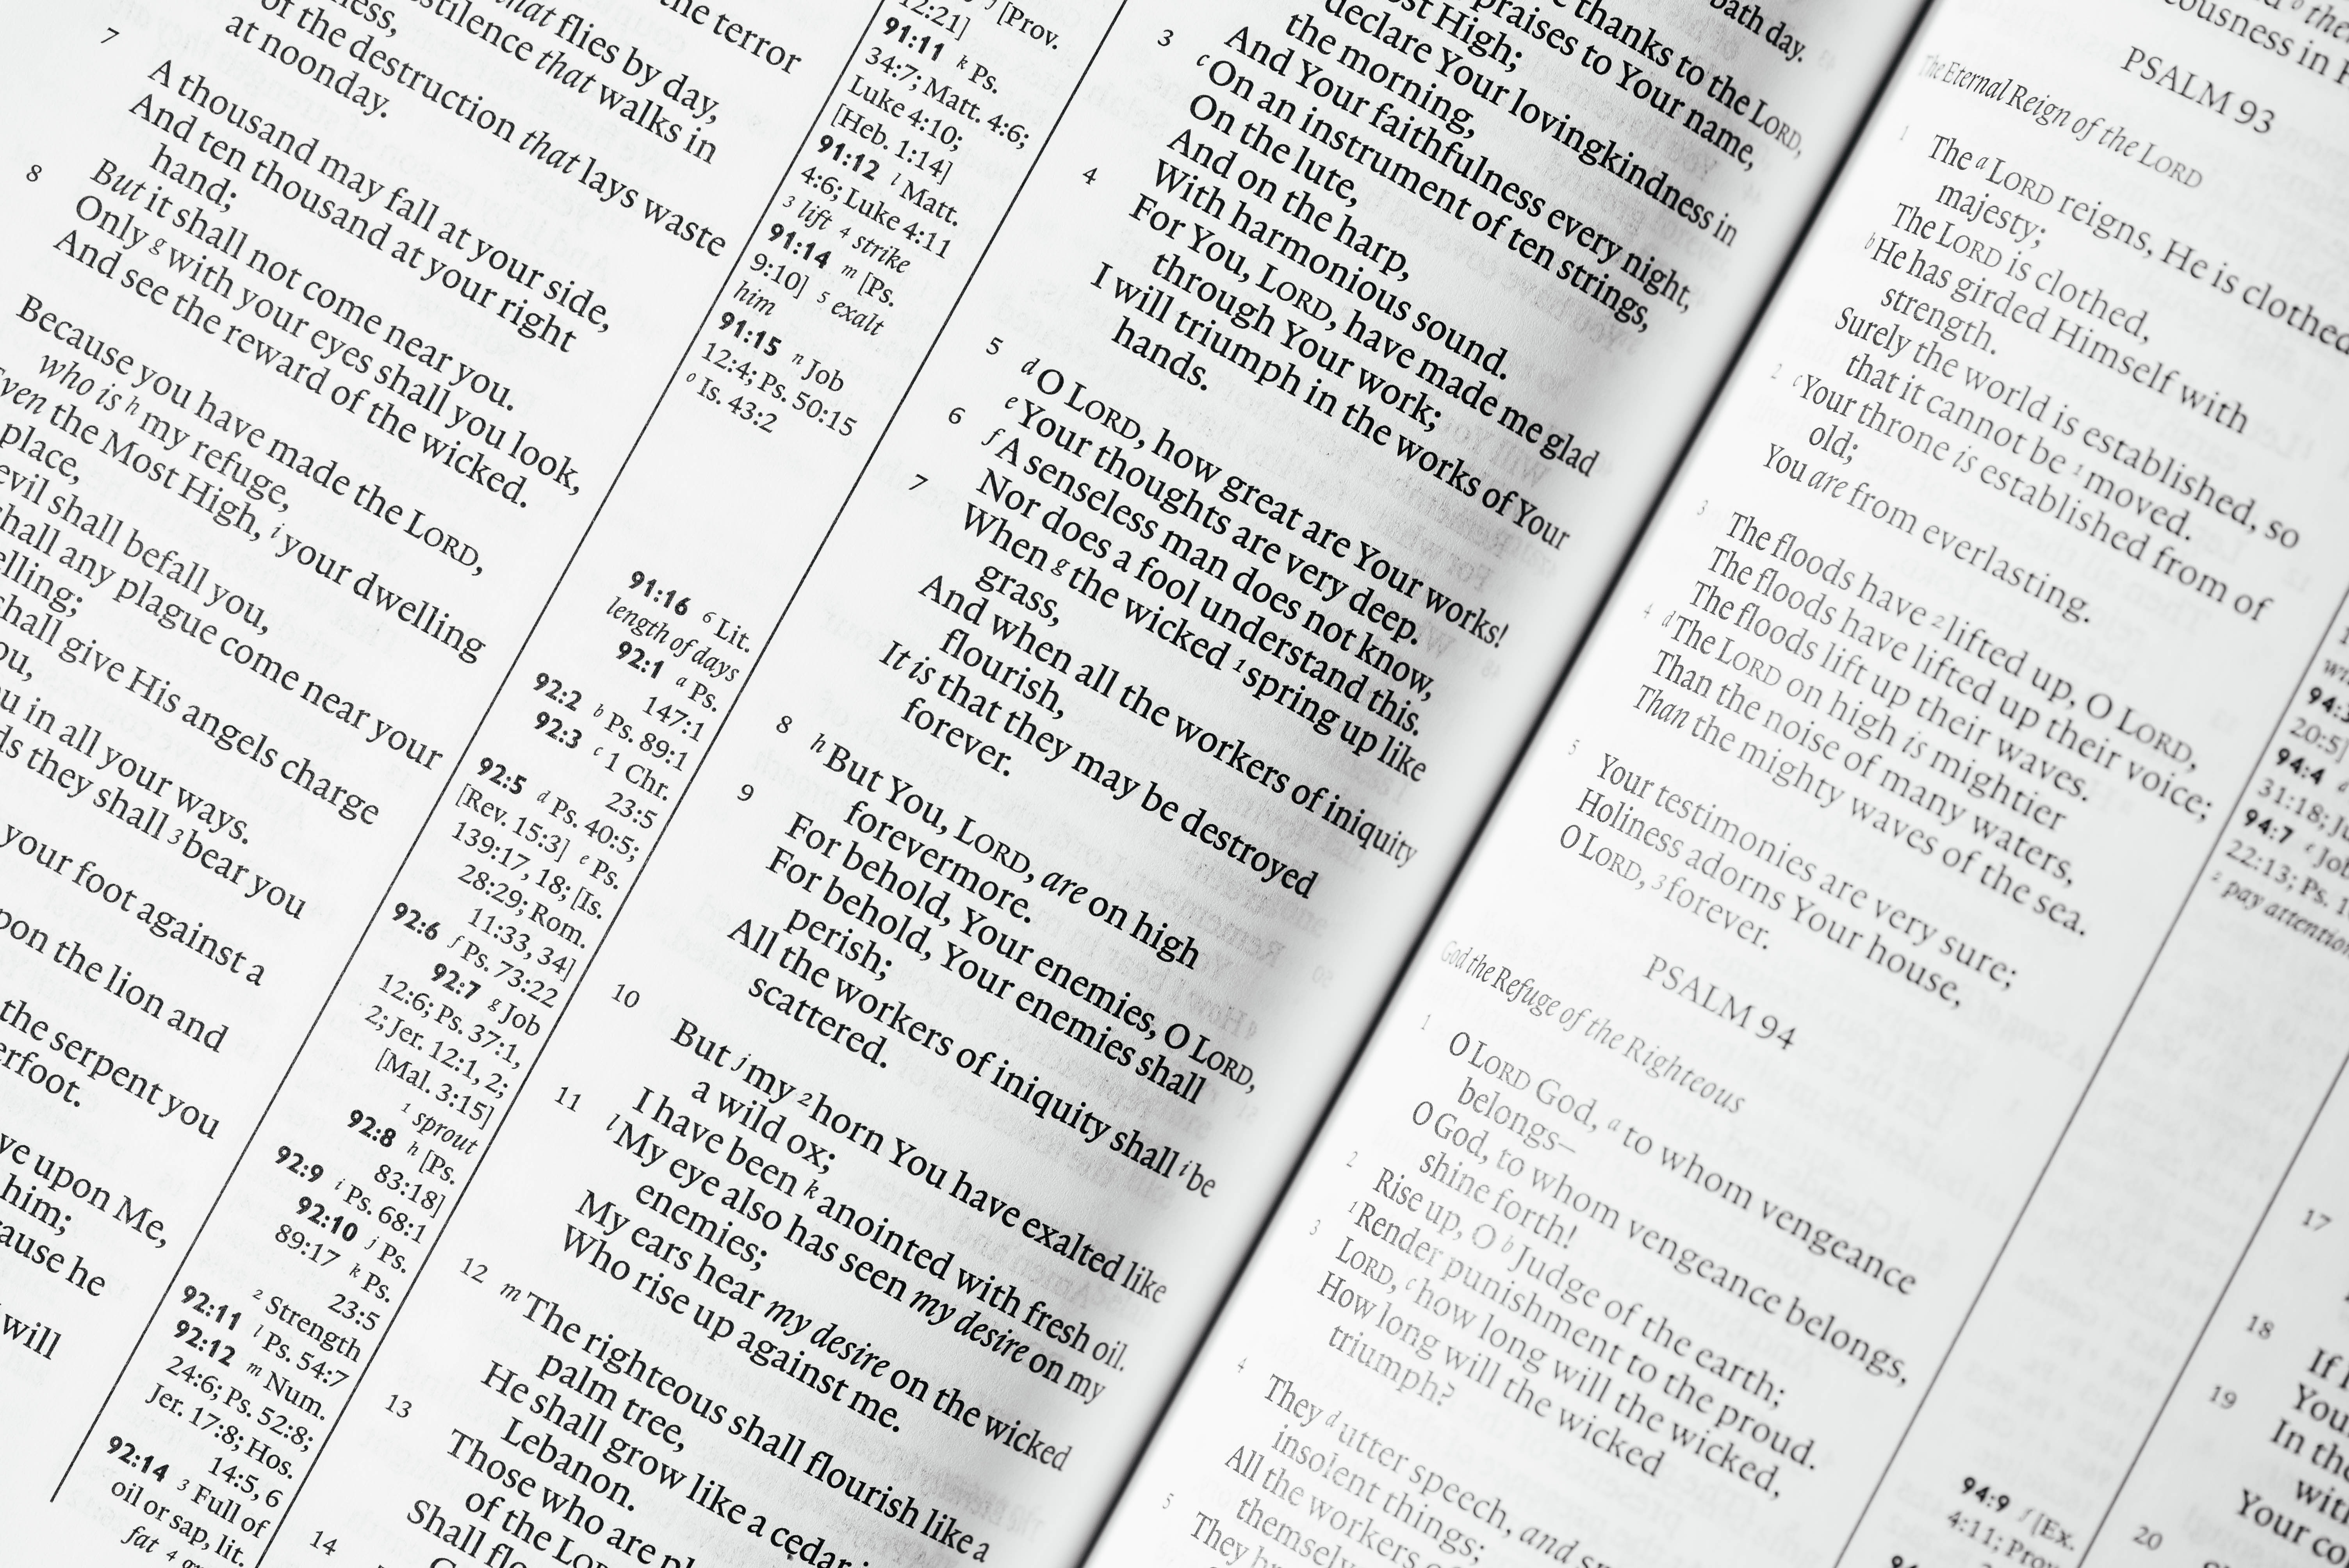 the terror
that flies by day,
pestilence that walks in
of the destruction that lays waste
at noonday.
7
A thousand may fall at your side,
And ten thousand at your right
hand;
But it shall not come near you.
8
Only g with your eyes shall you look,
And see the reward of the wicked.
Because you have made the LORD,
who is h my refuge,
the Most High, i your dwelling
place,
evil shall befall you,
shall any plague come near your
shall give His angels charge
in all your ways.
they shall 3 bear you
your foot against a
the lion and
the serpent you
upon Me,
him;
he
will
12:21] [Prov.
91:11 k Ps.
34:7; Matt. 4:6;
Luke 4:10;
[Heb. 1:14]
91:12 l Matt.
4:6; Luke 4:11
3 lift 4 strike
91:14 m [Ps.
9:10] 5 exalt
him
91:15 n Job
12:4; Ps. 50:15
o Is. 43:2
91:16 6 Lit.
length of days
92:1 a Ps.
147:1
92:2 b Ps. 89:1
92:3 c 1 Chr.
23:5
92:5 d Ps. 40:5;
[Rev. 15:3] e Ps.
139:17, 18; [Is.
28:29; Rom.
11:33, 34]
92:6 f Ps. 73:22
92:7 g Job
12:6; Ps. 37:1,
2; Jer. 12:1, 2;
[Mal. 3:15]
1 sprout
92:8 h [Ps.
83:18]
92:9 i Ps. 68:1
92:10 j Ps.
89:17 k Ps.
23:5
2 Strength
92:11 l Ps. 54:7
92:12 m Num.
24:6; Ps. 52:8;
Jer. 17:8; Hos.
14:5, 6
92:14 3 Full of
oil or sap, lit.
fat 4
day.
thanks to the LORD,
praises to Your name,
Most High;
declare Your lovingkindness in
the morning,
And Your faithfulness every night,
3
c On an instrument of ten strings,
On the lute,
And on the harp,
With harmonious sound.
4
For You, LORD, have made me glad
through Your work;
I will triumph in the works of Your
hands.
5
d O LORD, how great are Your works!
e Your thoughts are very deep.
6
f A senseless man does not know,
Nor does a fool understand this.
7
When g the wicked 1 spring up like
grass,
And when all the workers of iniquity
flourish,
It is that they may be destroyed
forever.
8
h But You, LORD, are on high
forevermore.
9
For behold, Your enemies, O LORD,
For behold, Your enemies shall
perish;
All the workers of iniquity shall i be
scattered.
10
But j my 2 horn You have exalted like
a wild ox;
I have been k anointed with fresh oil.
11
l My eye also has seen my desire on my
enemies;
My ears hear my desire on the wicked
Who rise up against me.
12
m The righteous shall flourish like a
palm tree,
He shall grow like a cedar
Lebanon.
13
Those who are
of the LORD
Shall
14
ousness in
PSALM 93
The Eternal Reign of the LORD
1
The a LORD reigns, He is clothed
majesty;
The LORD is clothed,
b He has girded Himself with
strength.
Surely the world is established, so
that it cannot be 1 moved.
2
c Your throne is established from of
old;
You are from everlasting.
3
The floods have 2 lifted up, O LORD,
The floods have lifted up their voice;
The floods lift up their waves.
4
d The LORD on high is mightier
Than the noise of many waters,
Than the mighty waves of the sea.
5
Your testimonies are very sure;
Holiness adorns Your house,
O LORD, 3 forever.
PSALM 94
God the Refuge of the Righteous
1
O LORD God, a to whom vengeance
belongs—
O God, to whom vengeance belongs,
shine forth!
2
Rise up, O b Judge of the earth;
1 Render punishment to the proud.
3
LORD, c how long will the wicked,
How long will the wicked
triumph?
4
They d utter speech, and
insolent things;
All the workers
5
They
20:5]
94:4 d
31:18;
94:7 e Job
22:13; Ps.
2 pay attention
94:9 f [Ex.
4:11; Prov.
17
18
If
19
In the
20